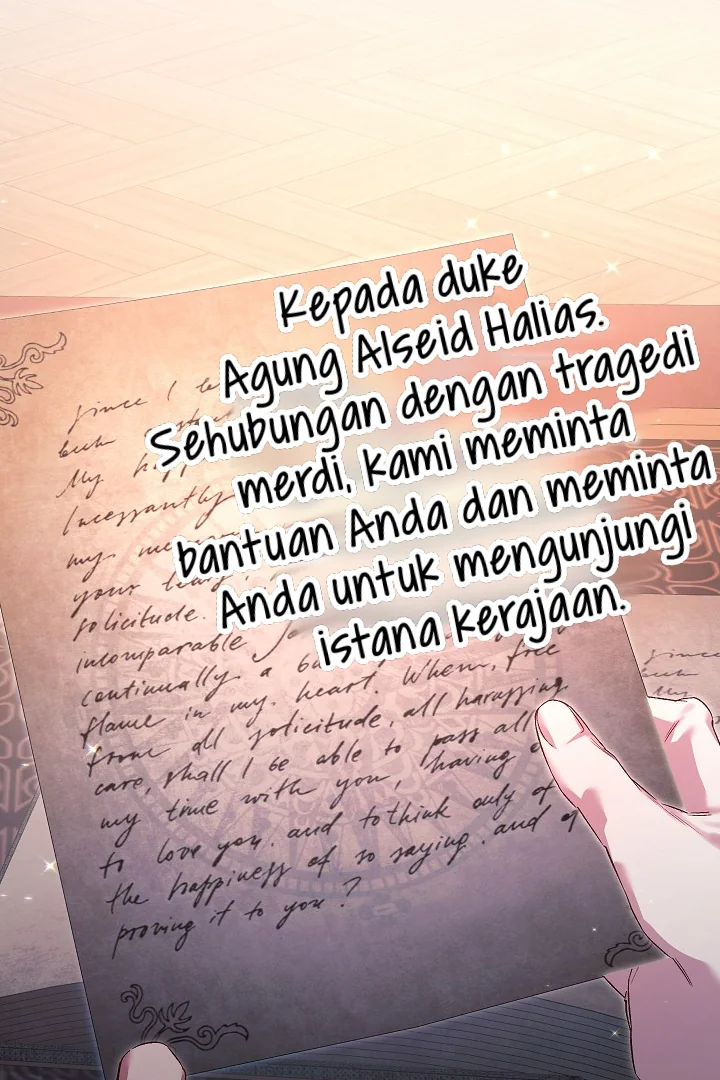 Kepada duke
Agung Alseid Halias.
Sehubungan dengan tragedi
merdi, kami meminta
bantuan Anda dan meminta
Anda untuk mengunjungi
istana kerajaan.
since I
My
Incessantly
my
your
solicitude.
incomparable
continually a
flame in my heart. When, free
from all solicitude, all harassing
care, shall I be able to pass all
my time with you, having
to love you. and tothink only of
the happiness of so saying. and of
proving it to you?
since
My